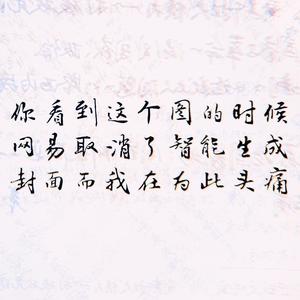 你看到这个图的时候
网易取消了智能生成
封面而我在为此头痛